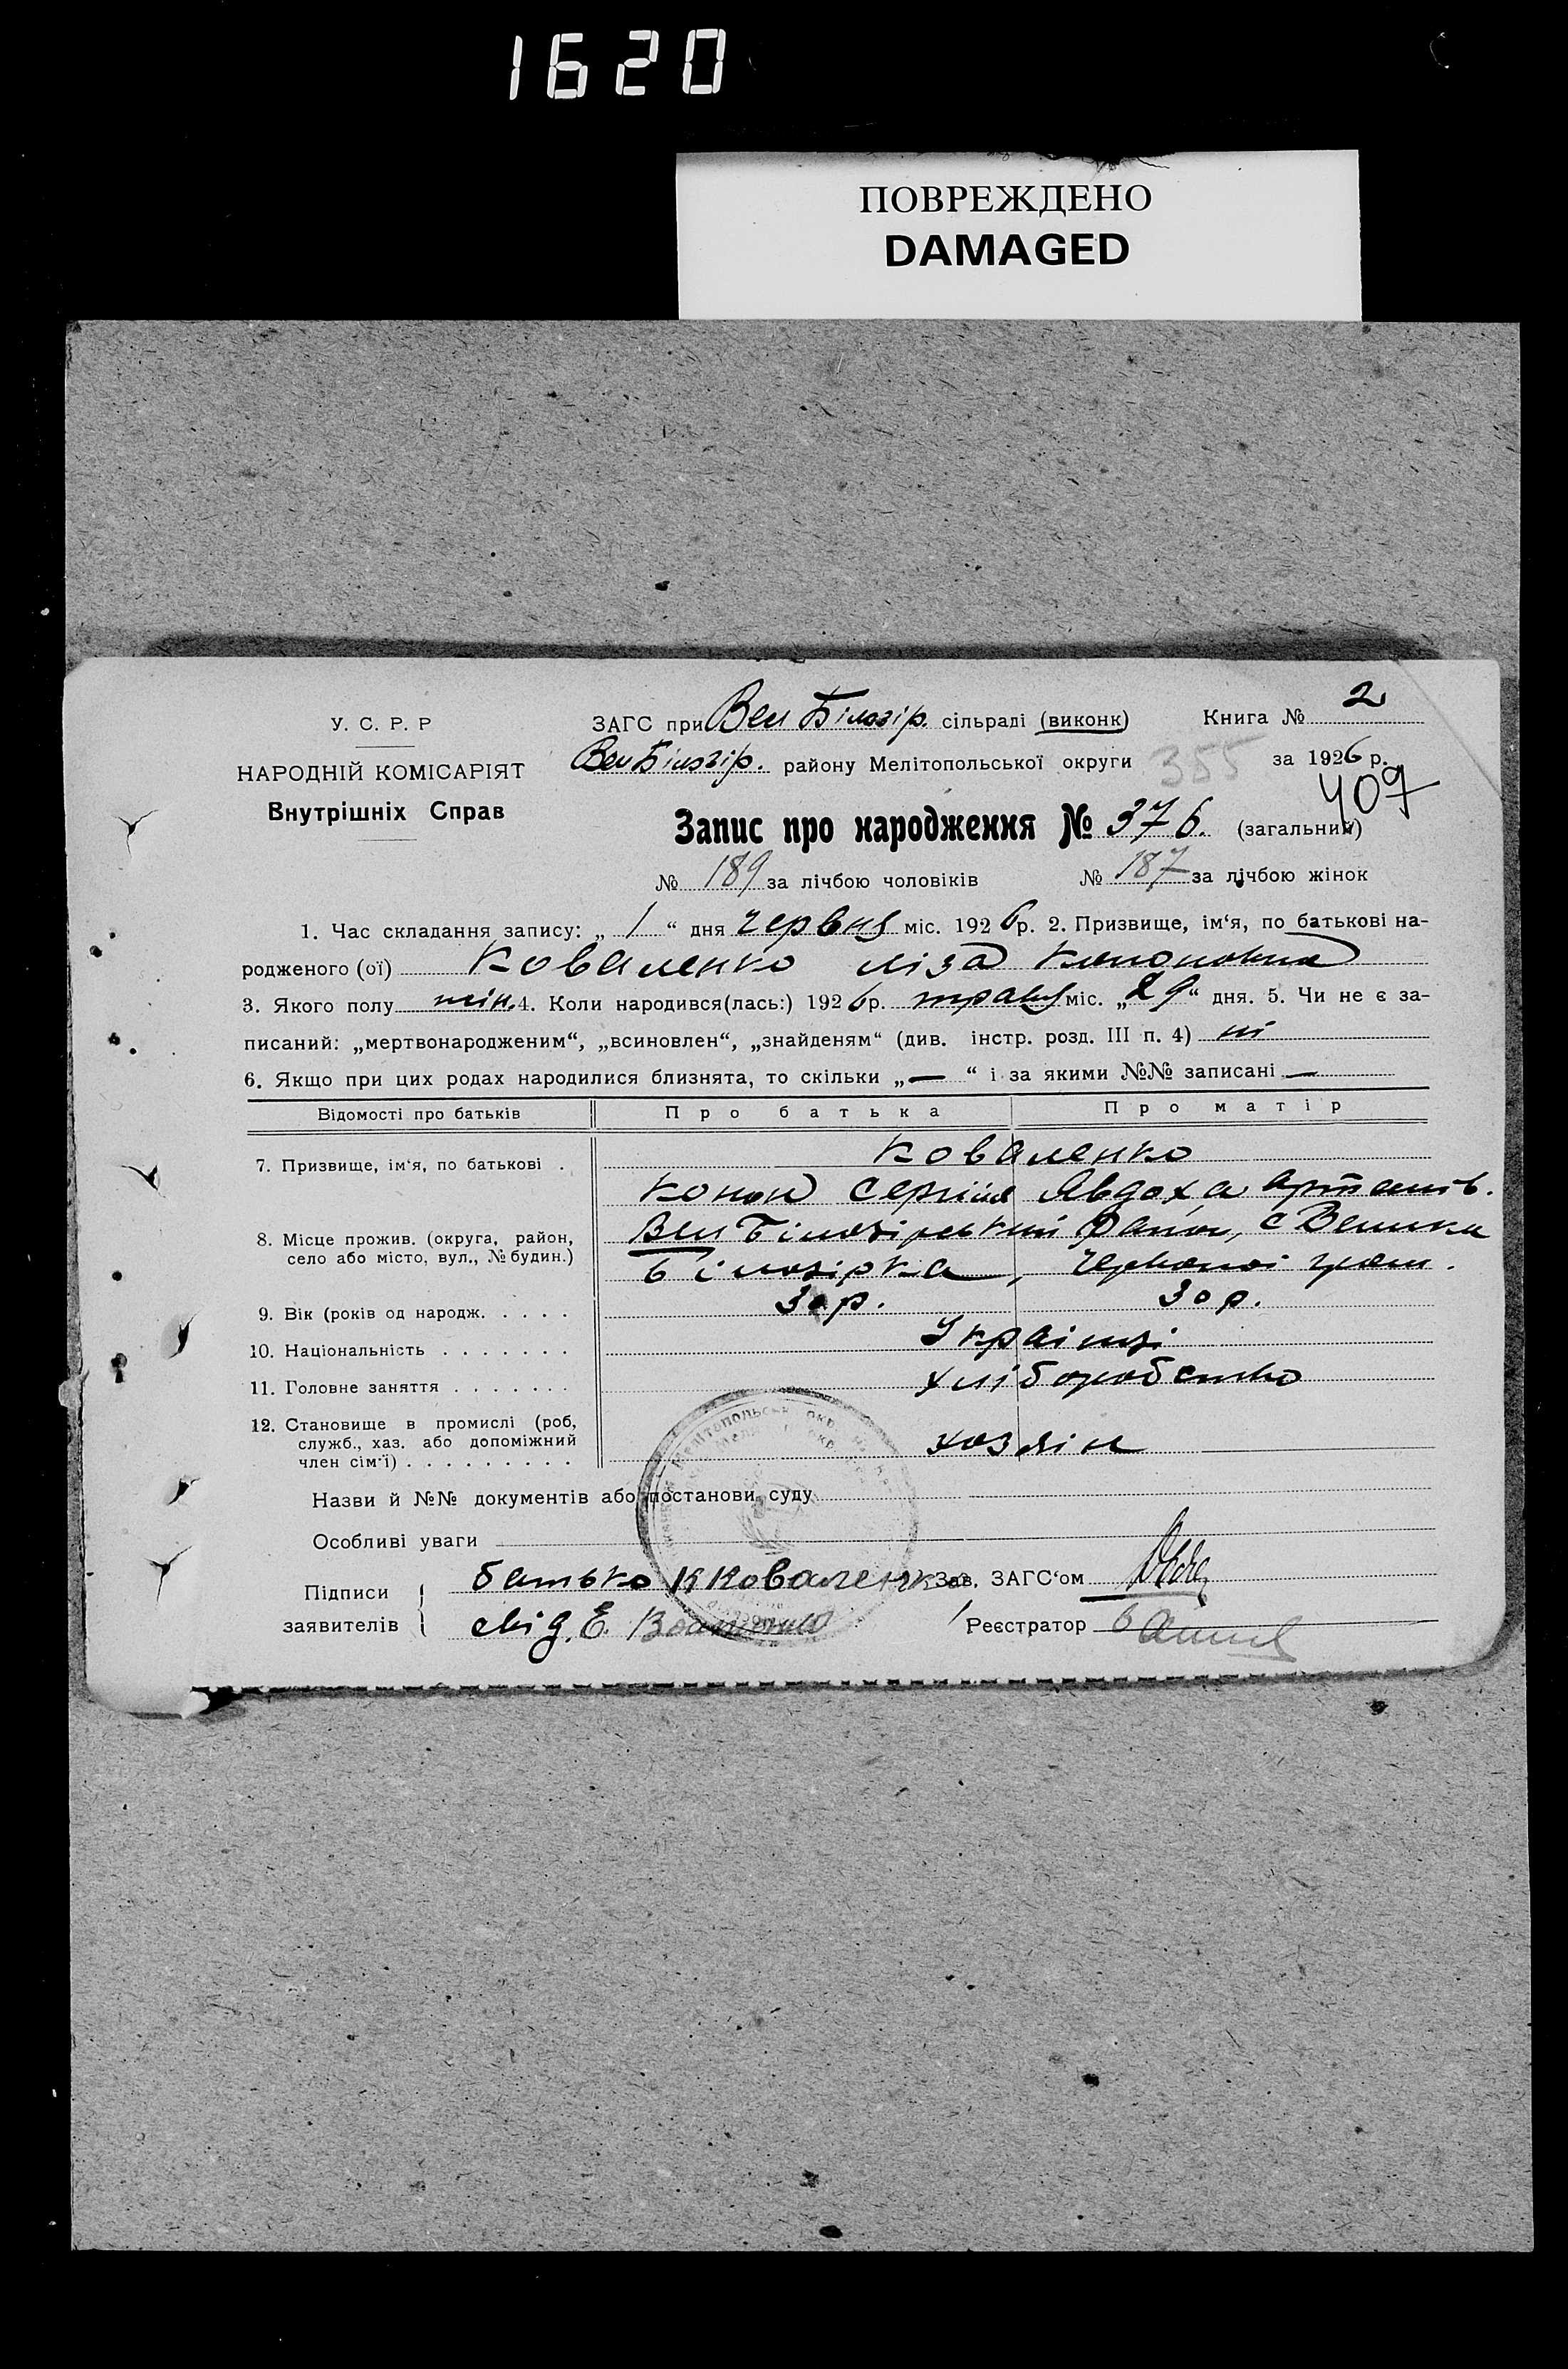 1620
ПОВРЕЖДЕНО
DAMAGED
У. С. Р. Р
НАРОДНІЙ КОМІСАРІЯТ
Внутрішніх Справ
ЗАГС при Вел Білозір. сільраді (виконк) Книга № 2
Вел Білозір. району Мелітопольської округи 355 за 1926 р.
409
Запис про народження № 376. (загальний)
№ 189 за лічбою чоловіків № 187 за лічбою жінок
1. Час складання запису: „ 1 “ дня червня міс. 1926 р. 2. Призвище, ім‘я, по батькові на-
родженого (ої) Коваленко Ліза Кононовна
3. Якого полу жін. 4. Коли народився(лась:) 1926 р. травня міс. „29“ дня. 5. Чи не є за-
писаний: „мертвонародженим“, „всиновлен“, „знайденям“ (див. інстр. розд. III п. 4) ні
6. Якщо при цих родах народилися близнята, то скільки „—“ і за якими №№ записані —
Відомості про батьків Про батька Про матір
7. Призвище, ім‘я, по батькові . Коваленко
Конон Явдоха
8. Місце прожив. (округа, район, село або місто, вул., № будин.) Вел Білозірський Район, с Велика
Білозірка, Червоної
9. Вік (років од народж. . . . . 30 р. 30 р.
10. Національність . . . . . . . Українці
11. Головне заняття . . . . . . . хліборобство
12. Становище в промислі (роб, служб., хаз. або допоміжний член сім‘ї) . . . . . . . . . хозяін
Назви й №№ документів або постанови суду
Особливі уваги
Підписи заявителів батько К Коваленко Зав. ЗАГС‘ом
свід. Е. Реєстратор